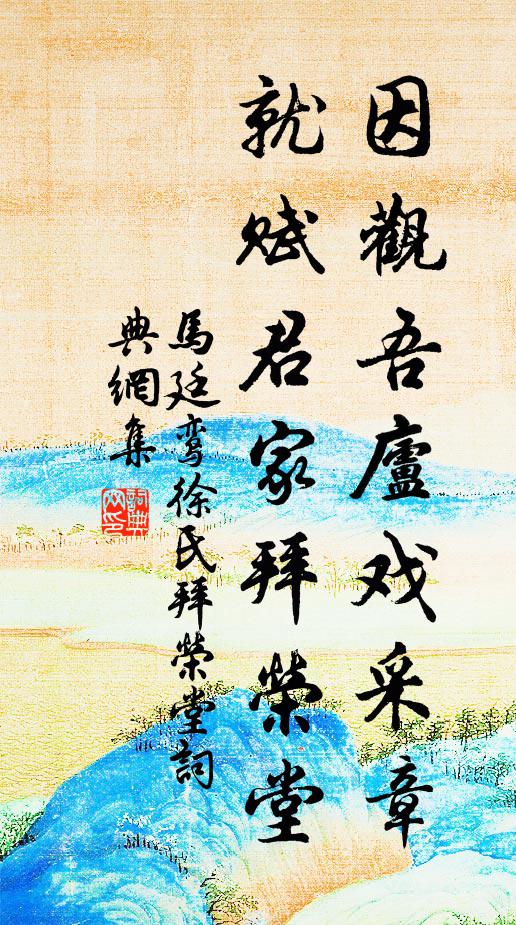 因觀吾廬戏采章
就赋君家拜榮堂
馬廷鸾徐氏拜榮堂詞
典網集
詞典網印